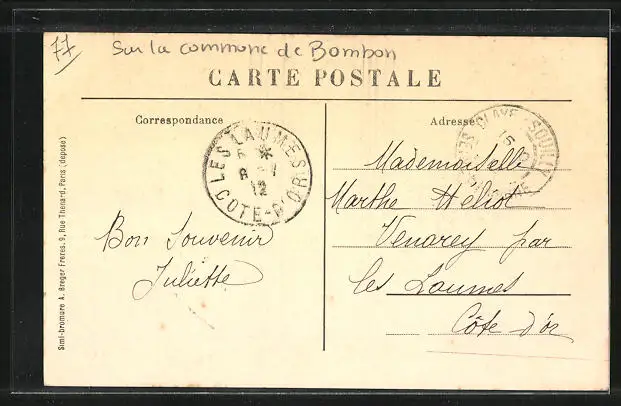 77
Sur la commune de Bombon
CARTE POSTALE
Correspondance
Adresse
LES LAUMES
COTE-D'OR
12
CLAYE-SOUILLY
Mademoiselle
Marthe Héliot
Venarey par
les Laumes
Côte d'or
Bon Souvenir
Juliette
Simi-bromure A. Breger Frères, 9, Rue Thénard, Paris (déposé)